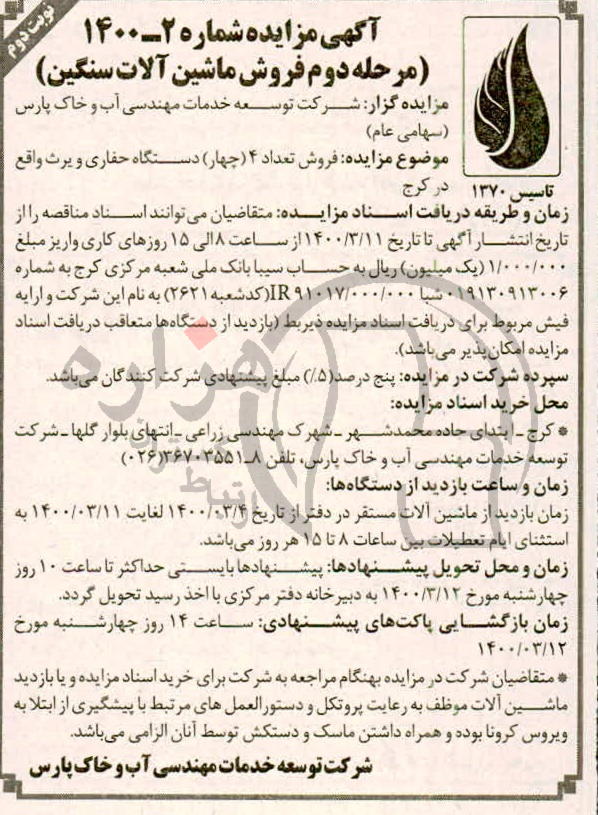 نوبت دوم
آگهی مزایده شماره ۲ــ۱۴۰۰
(مرحله دوم فروش ماشین آلات سنگین)
تاسیس ۱۳۷۰
مزایده گزار: شرکت توسعه خدمات مهندسی آب و خاک پارس
(سهامی عام)
موضوع مزایده: فروش تعداد ۴ (چهار) دستگاه حفاری ویرث واقع
در کرج
زمان و طریقه دریافت اسناد مزایده: متقاضیان می‌توانند اسناد مناقصه را از
تاریخ انتشار آگهی تا تاریخ ۱۴۰۰/۳/۱۱ از ساعت ۸ الی ۱۵ روزهای کاری واریز مبلغ
۱/۰۰۰/۰۰۰ (یک میلیون) ریال به حساب سیبا بانک ملی شعبه مرکزی کرج به شماره
۰۱۹۱۳۰۹۱۳۰۰۶ شبا IR ۹۱۰۱۷/۰۰۰/۰۰۰ (کدشعبه ۲۶۲۱) به نام این شرکت و ارایه
فیش مربوط برای دریافت اسناد مزایده ذیربط (بازدید از دستگاه‌ها متعاقب دریافت اسناد
مزایده امکان‌پذیر می‌باشد).
سپرده شرکت در مزایده: پنج درصد (۵٪) مبلغ پیشنهادی شرکت کنندگان می‌باشد.
محل خرید اسناد مزایده:
* کرج ـ ابتدای جاده محمدشهر ـ شهرک مهندسی زراعی ـ انتهای بلوار گلها ـ شرکت
توسعه خدمات مهندسی آب و خاک پارس، تلفن ۸ـ۳۶۷۰۳۵۵۱(۰۲۶)
زمان و ساعت بازدید از دستگاه‌ها:
زمان بازدید از ماشین آلات مستقر در دفتر از تاریخ ۱۴۰۰/۰۳/۴ لغایت ۱۴۰۰/۰۳/۱۱ به
استثنای ایام تعطیلات بین ساعات ۸ تا ۱۵ هر روز می‌باشد.
زمان و محل تحویل پیشنهادها: پیشنهادها بایستی حداکثر تا ساعت ۱۰ روز
چهارشنبه مورخ ۱۴۰۰/۳/۱۲ به دبیرخانه دفتر مرکزی با اخذ رسید تحویل گردد.
زمان بازگشایی پاکت‌های پیشنهادی: ساعت ۱۴ روز چهارشنبه مورخ
۱۴۰۰/۰۳/۱۲
* متقاضیان شرکت در مزایده بهنگام مراجعه به شرکت برای خرید اسناد مزایده و یا بازدید
ماشین آلات موظف به رعایت پروتکل و دستورالعمل های مرتبط با پیشگیری از ابتلا به
ویروس کرونا بوده و همراه داشتن ماسک و دستکش توسط آنان الزامی می‌باشد.
شرکت توسعه خدمات مهندسی آب و خاک پارس
هزاره